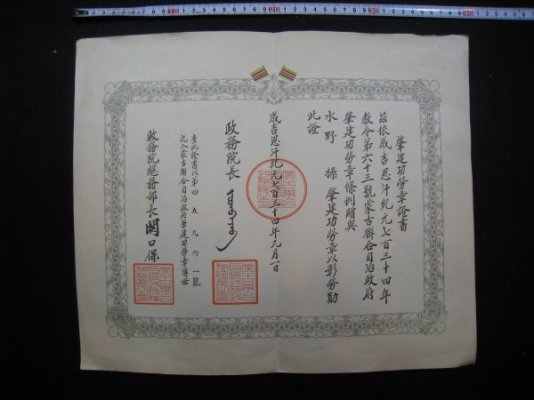 肇建功勞章證書
茲依成吉思汗紀元七百三十四年
敎令第六十三號蒙古聯合自治政府
肇建功勞章條例賜與
水野 操 肇建功勞章以彰勞勩
此證
成吉思汗紀元七百三十四年九月一日
政務院長
查此證書以第四五九六一號
記入蒙古聯合自治政府肇建功勞章簿册
政務院總務部長 關口保